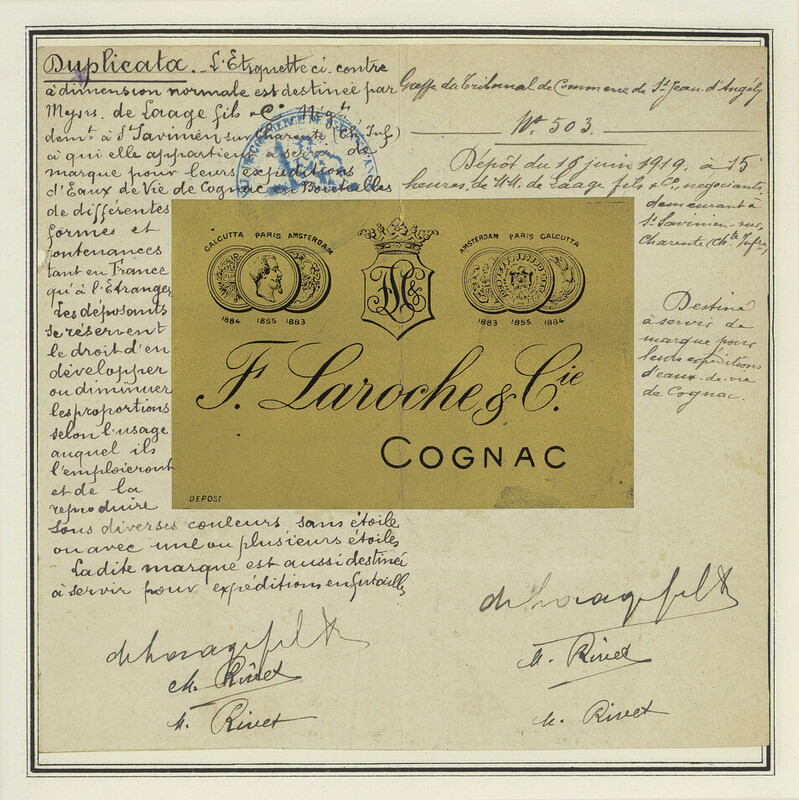 Duplicata. _ L'Etiquette ci-contre
à dimension normale est destinée par
Messrs. de Laage fils & Cie Négts
demt à St Savinien sur Charente (Ch. Inf)
à qui elle appartient à servir de
marque pour leurs expéditions
d'Eaux de Vie de Cognac en Bouteilles
de différentes
formes et
contenances
tant en France
qu'à l'Etranger
Les déposants
se réservent
le droit d'en
développer
ou diminuer
les proportions
selon l'usage
auquel ils
l'emploieront
et de la
reproduire
sous diverses couleurs sans étoile
ou avec une ou plusieurs étoiles
La dite marque est aussi destinée
à servir pour expéditions en futailles
de Laage fils &
M. Rivet
M. Rivet
Greffe du Tribunal de Commerce de St Jean d'Angély
No 503.
Dépôt du 18 juin 1919. à 15
heures, de MM. de Laage fils & Co, négociants,
demeurant à
St Savinien-sur-
Charente (Chte Infre)
Destiné
à servir de
marque pour
leurs expéditions
d'eaux-de-vie
de Cognac.
CALCUTTA PARIS AMSTERDAM
1884 1855 1883
AMSTERDAM PARIS CALCUTTA
1883 1855 1884
F. Laroche & Cie
COGNAC
DEPOSÉ
de Laage fils &
M. Rivet
M. Rivet